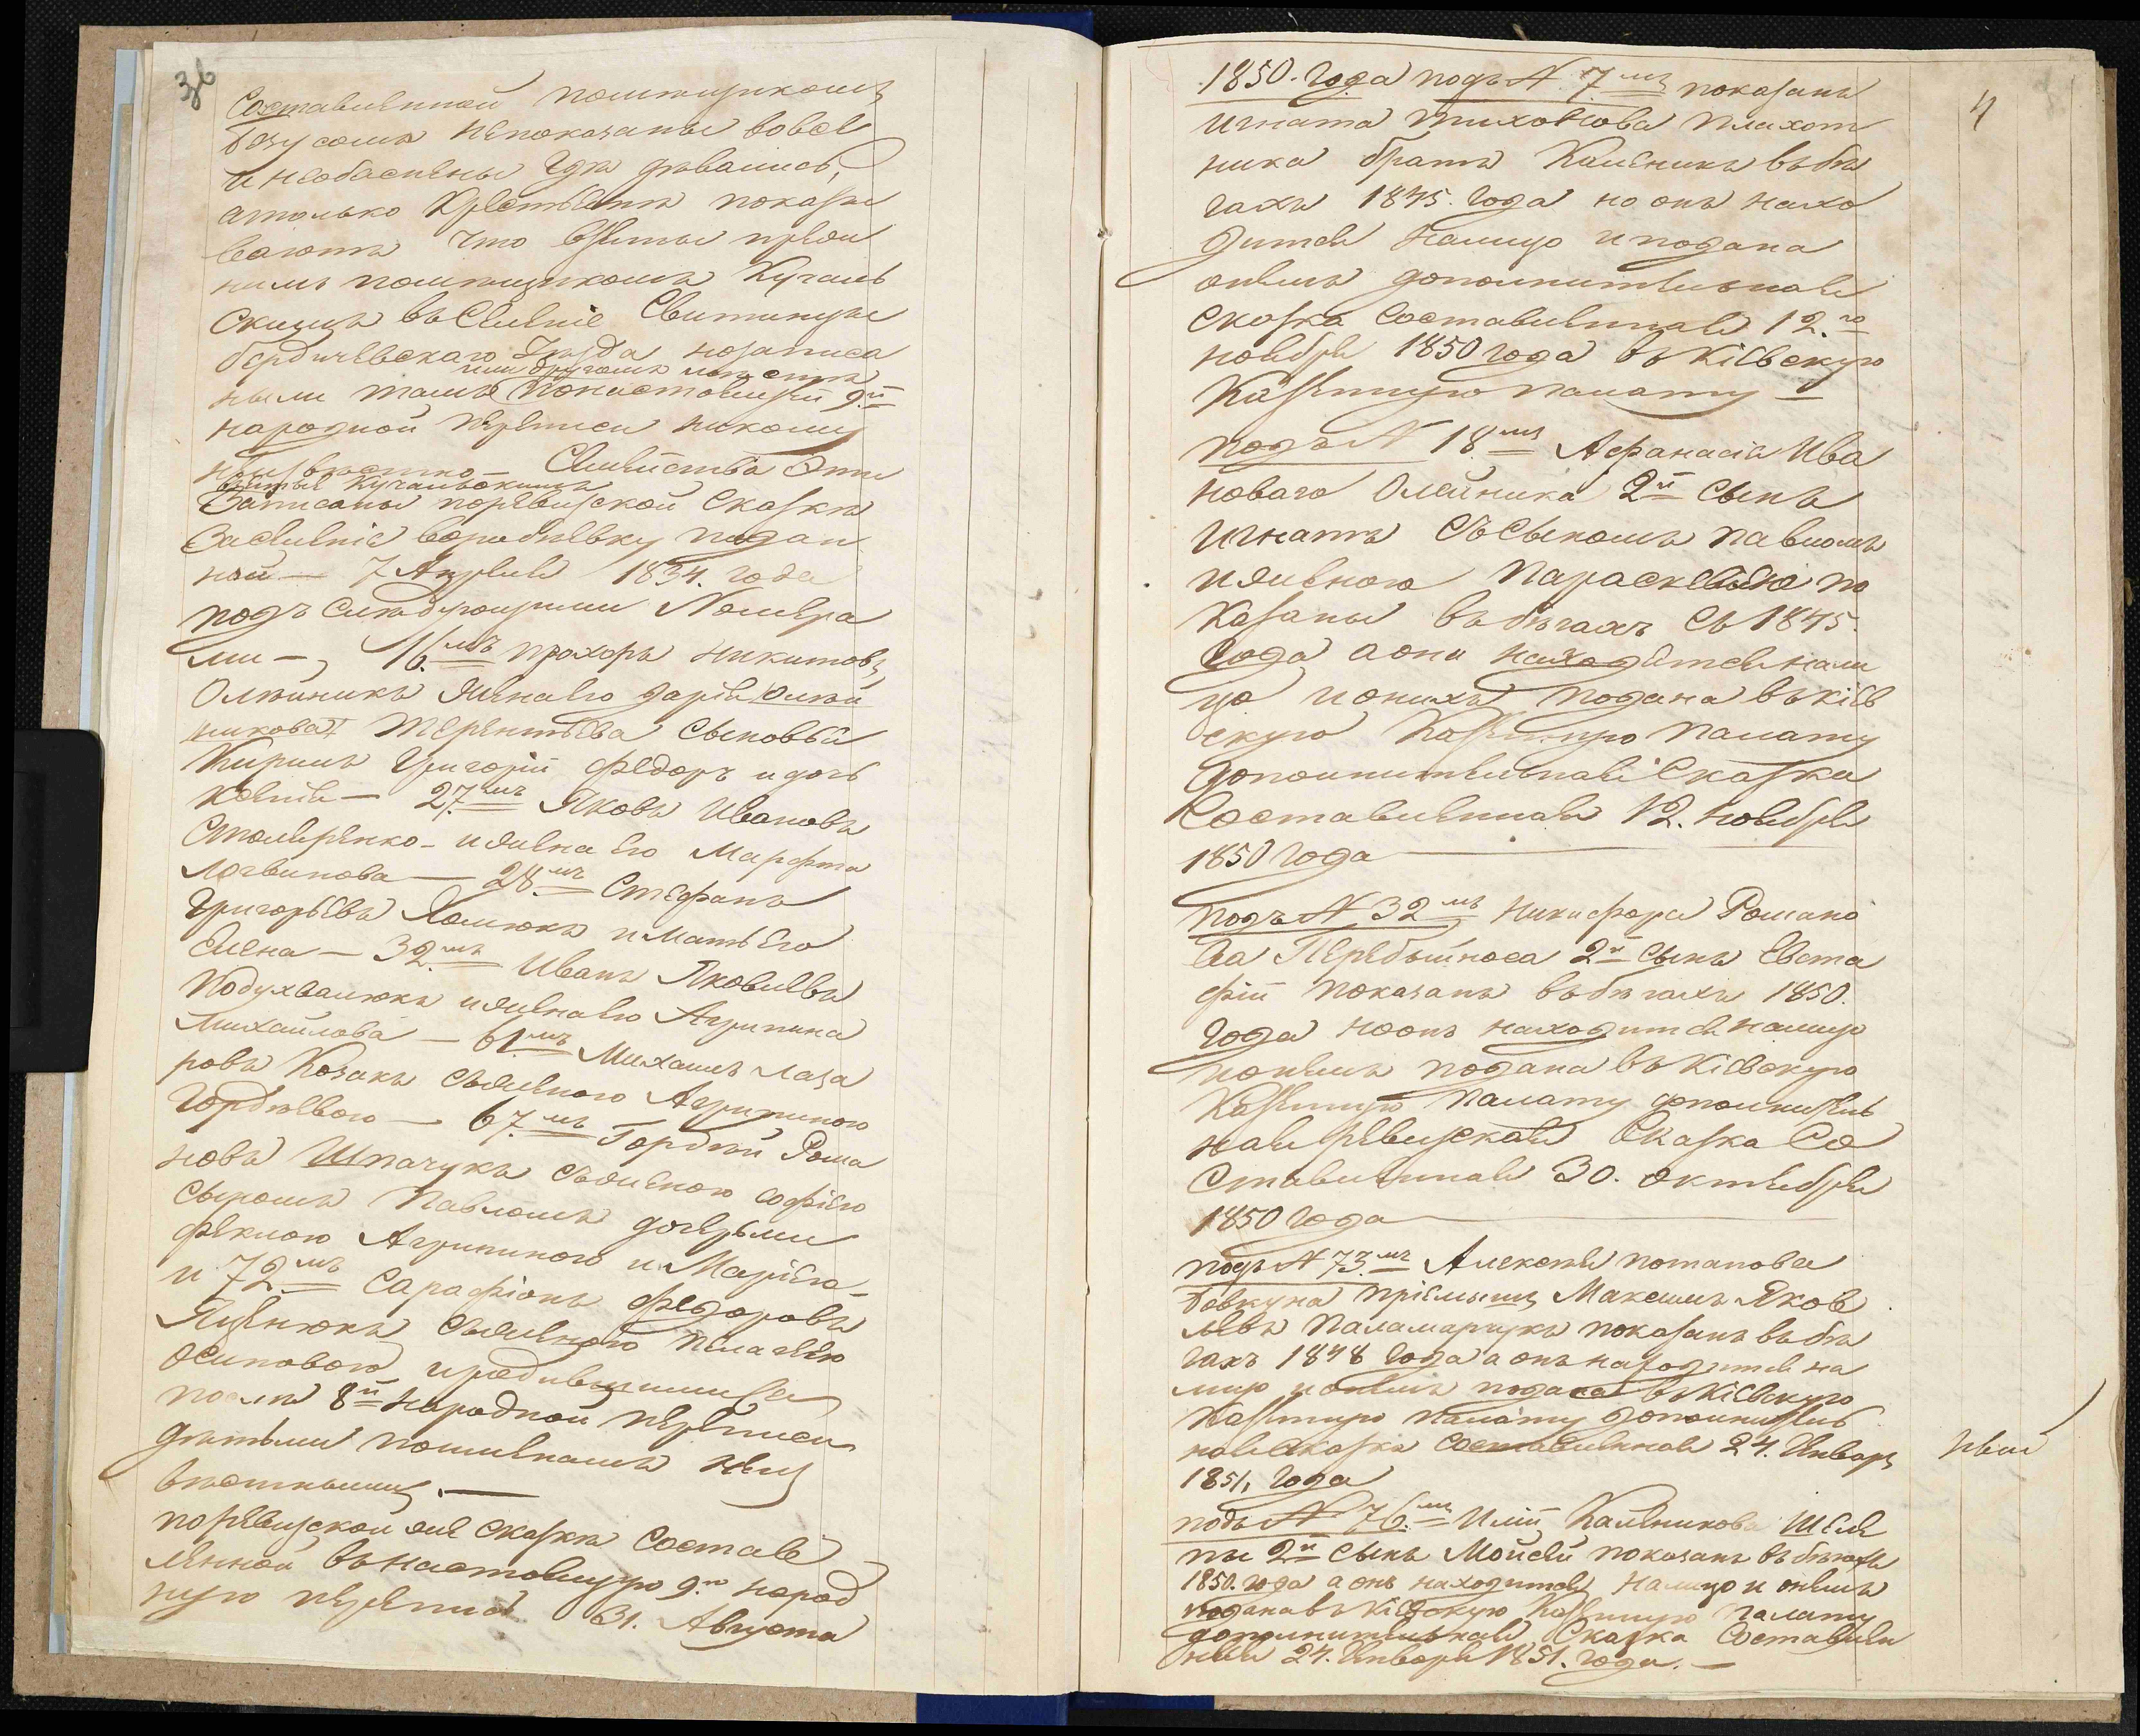 36
Составленной помещикомъ
безусомъ непоказаны вовсе
и необаснены гдѣ дѣвались,
атолько Крестьяне показы
ваютъ что взяты преж
нимъ помещикомъ Кучаль
скимъ въ Селеніе Свитинцы
бердичевскаго уезда нозаписа
или другомъ местѣ
ныли тамъ понастоящей 9й
народной переписи никому
неизвѣстно — Семейства Эти
взятые Кучальскимъ
Записаны поревизской Сказкѣ
Заселеніе воробіевку подан
ной — 7 Апреля 1834. года
подъ слѣдующими Номера
ми —, 16.мъ прохоръ Никитовъ
Олѣйникъ жена его дарія Олѣй
никова Терентьева Сыновья
Кирилъ Григорій Федоръ и дочь
Ксенія — 27.мъ Яковъ Ивановъ
Столяренко — и жена его Марфта
Логвинова — 28.мъ Стефанъ
Григорьевъ Хомюкъ и мать Его
Елена — 32.мъ Иванъ Яковлевъ
Подухвалюкъ и жена его Агрипина
Михайлова — 61.мъ Михаилъ лаза
ровъ Козакъ съ женою Агрипиною
Гордіевою — 67.мъ Гордій Рома
новъ Шпачукъ съ женою софіею
Сыномъ Павломъ дочерьми
феклою Агрипиною и Маріею —
и 72.мъ Сарафіонъ Федоровъ
Яценюкъ съ женою пелагею
Осиповою, и родившимися
послѣ 8й народной переписи
дѣтьми поименамъ неиз
вѣстными. —
поревизской же сказкѣ Состав
ленной въ настоящую 9.ю народ
ную перепись 31. Августа
4
1850. года подъ N. 7мъ показанъ
игната тиховнова плахот
ника братъ Каленикъ въ бѣ
гахъ 1845. года но онъ нахо
дится налицо и подана
онемъ дополнительная
сказка составленная 12.го
ноября 1850 года въ Кіевскую
Казенную палату —
подъ N 18мъ Афанасія Ива
новаго Олейника 2й сынъ
игнатъ съ Сыномъ павломъ
и женою параскевіею по
казаны въ бѣгахъ съ 1845.
года а они находятся нали
цо и онихъ подана въ Кіев
скую Казенную палату
дополнительная Сказка
составленная 12. ноября
1850 года
подъ N 32мъ никифора Романо
ва Перебыйноса 2й сынъ Евста
фій показанъ въ бѣгахъ 1850.
года но онъ находится налицо
и онемъ подана въ Кіевскую
Казенную палату дополнитель
ная ревизская Сказка Со
ставленная 30. октября
1850 года
подъ N 73.мъ Алексѣя потапова
Бовкуна пріемышъ Максимъ Яков
левъ Паламарчукъ показанъ въ бѣ
гахъ 1848 года а онъ находится на
лицо и онемъ подана въ Кіевскую
Казенную палату дополнитель
ная сказка составленная 24. Январ
ный
1851, года
подъ N 76.мъ Иліи Каленикова Шеле
пы 2й сынъ Мойсей показанъ въ бѣгахъ
1850. года а онъ находится налицо и онемъ
подана въ Кіевскую Казенную палату
дополнительная Сказка Составлен
ная 24. Января 1851. года. —